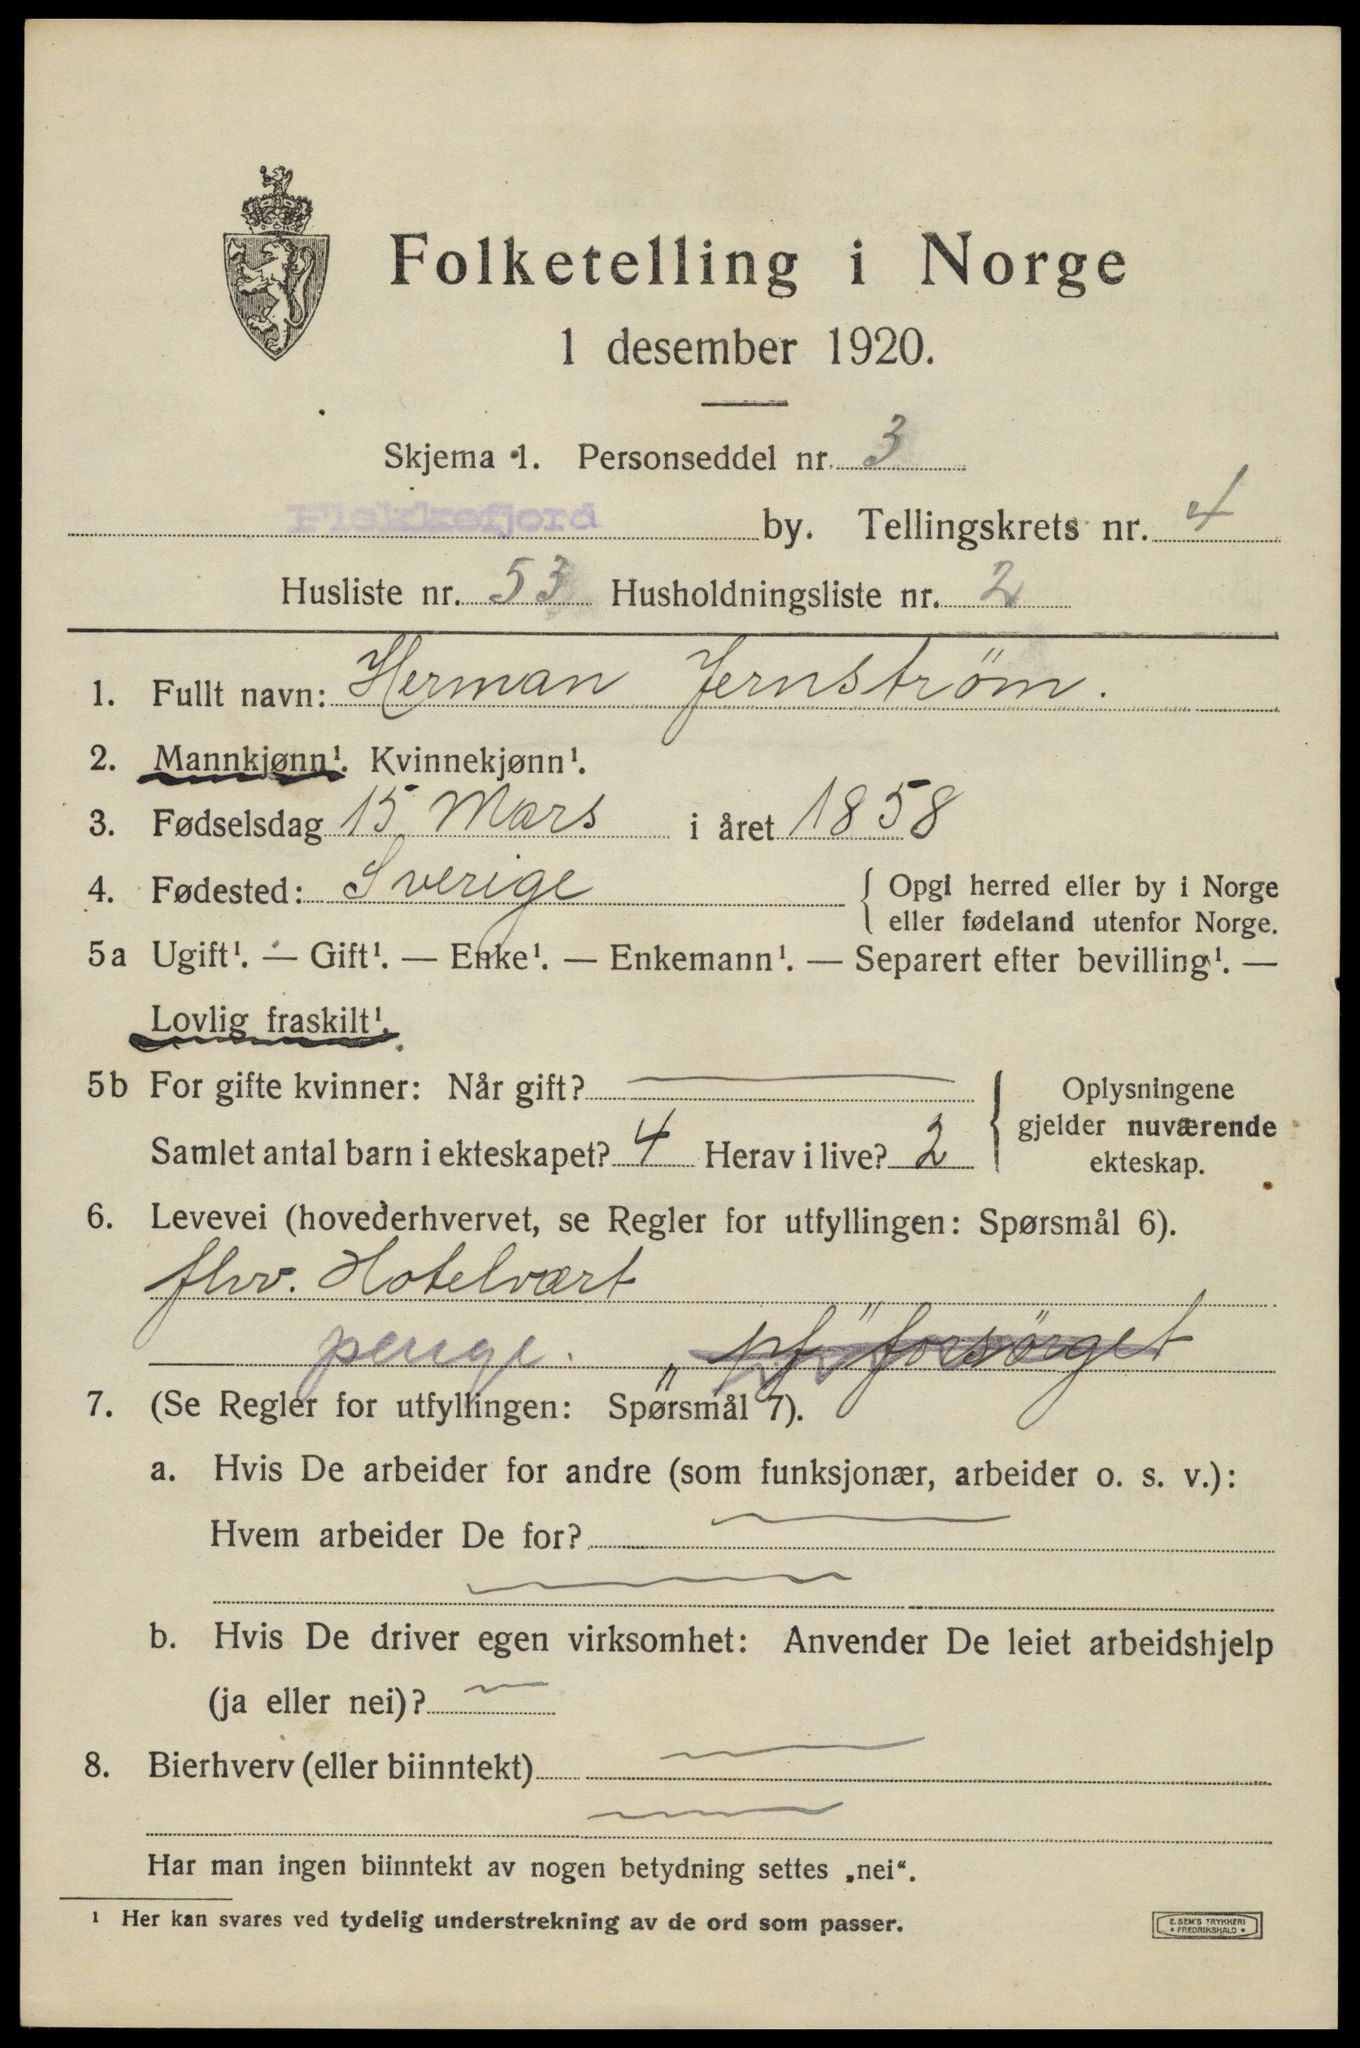 Folketelling i Norge
1 desember 1920.
Skjema 1. Personseddel nr. 3
Flekkefjord by. Tellingskrets nr. 4
Husliste nr. 53 Husholdningsliste nr. 2
1. Fullt navn: Herman Jernstrøm.
2. Mannkjønn¹. Kvinnekjønn¹.
3. Fødselsdag 15 Mars i året 1858
4. Fødested: Sverige { Opgi herred eller by i Norge
eller fødeland utenfor Norge.
5a Ugift¹. — Gift¹. — Enke¹. — Enkemann¹. — Separert efter bevilling¹. —
Lovlig fraskilt¹.
5b For gifte kvinner: Når gift? —
Samlet antal barn i ekteskapet? 4 Herav i live? 2
{ Oplysningene
gjelder nuværende
ekteskap.
6. Levevei (hovederhvervet, se Regler for utfyllingen: Spørsmål 6).
fhv. Hotelvært
penge. „ pf "forsørget"
7. (Se Regler for utfyllingen: Spørsmål 7).
a. Hvis De arbeider for andre (som funksjonær, arbeider o. s. v.):
Hvem arbeider De for? —
—
b. Hvis De driver egen virksomhet: Anvender De leiet arbeidshjelp
(ja eller nei)? —
8. Bierhverv (eller biinntekt) —
—
Har man ingen biinntekt av nogen betydning settes „nei“.
¹ Her kan svares ved tydelig understrekning av de ord som passer.
E. SEM'S TRYKKERI
• FREDRIKSHALD •